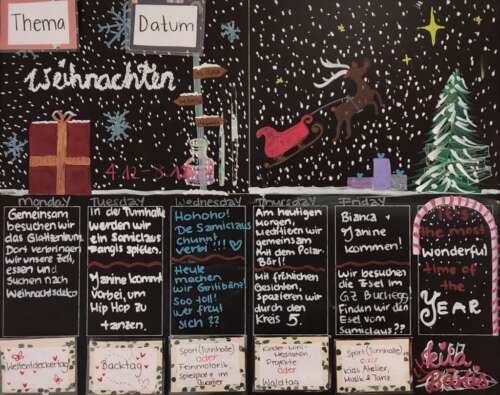 Thema
Datum
Weihnachten
Monday
Tuesday
Wednesday
Thursday
Friday
Gemeinsam
besuchen wir
das Glattzentrum.
Dort verbringen
wir unsere Zeit,
essen und
suchen nach
Weihnachtsdeko
In die Turnhalle
werden wir
ein Samiclaus
Fangis spielen.
Janine kommt
vorbei, um
Hip Hop zu
tanzen.
Hohoho!
De Samiclaus
chunnt
verbi!!!
Heute
machen
wir Grittibänz!
Soo toll!
Wer freut
sich ??
Am heutigen
Morgen,
meditieren wir
gemeinsam
mit dem Polar-
Bär!!
Mit fröhlichen
Gesichten,
spazieren wir
durch den
Kreis 5.
Bianca
Janine
kommen!
Wir besuchen
die Esel im
GZ Buchegg.
Finden wir den
Esel vom
Samiclaus??
the most
Wonderful
time of the
YEAR
Weltentdeckertag
Backtag
Sport (Turnhalle)
oder
Feinmotorik,
Spielplatz im
Quartier
Kinder-Mini-
Meditation,
Projekte
oder
Waldtag
Sport (Turnhalle)
oder
Kids Atelier,
Musik & Tanz